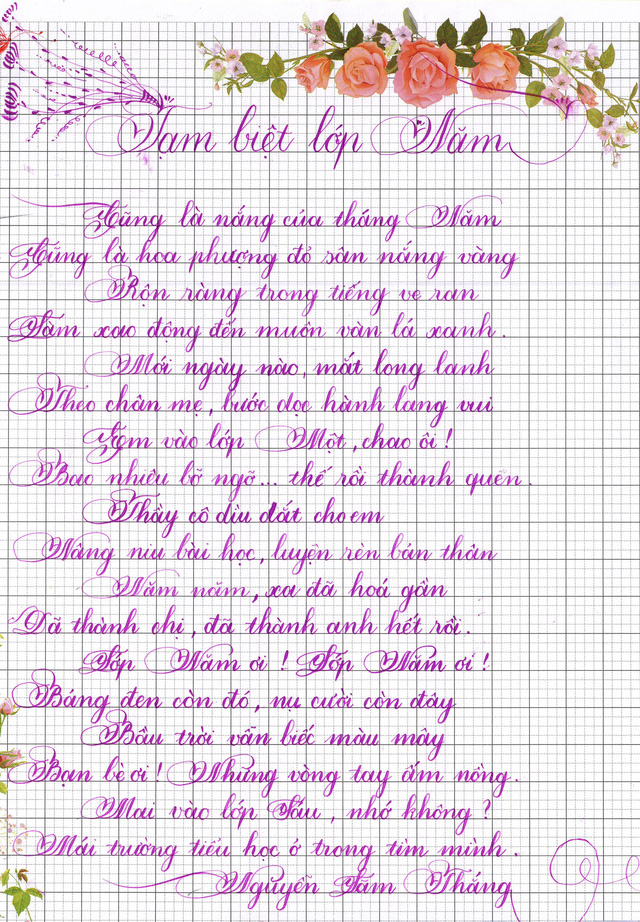 Tạm biệt lớp Năm
Cũng là nắng của tháng Năm
Cũng là hoa phượng đỏ sân nắng vàng
Rộn ràng trong tiếng ve ran
Làm xao động đến muôn vàn lá xanh.
Mới ngày nào, mắt long lanh
Theo chân mẹ, bước dọc hành lang vui
Em vào lớp Một, chao ôi!
Bao nhiêu bỡ ngỡ... thế rồi thành quen.
Thầy cô dìu dắt cho em
Nâng niu bài học, luyện rèn bản thân
Năm năm, xa đã hoá gần
Đã thành chị, đã thành anh hết rồi.
Lớp Năm ơi! Lớp Năm ơi!
Bảng đen còn đó, nụ cười còn đây
Bầu trời vẫn biếc màu mây
Bạn bè ơi! Những vòng tay ấm nồng.
Mai vào lớp Sáu, nhớ không?
Mái trường tiểu học ở trong tim mình.
Nguyễn Tâm Thắng